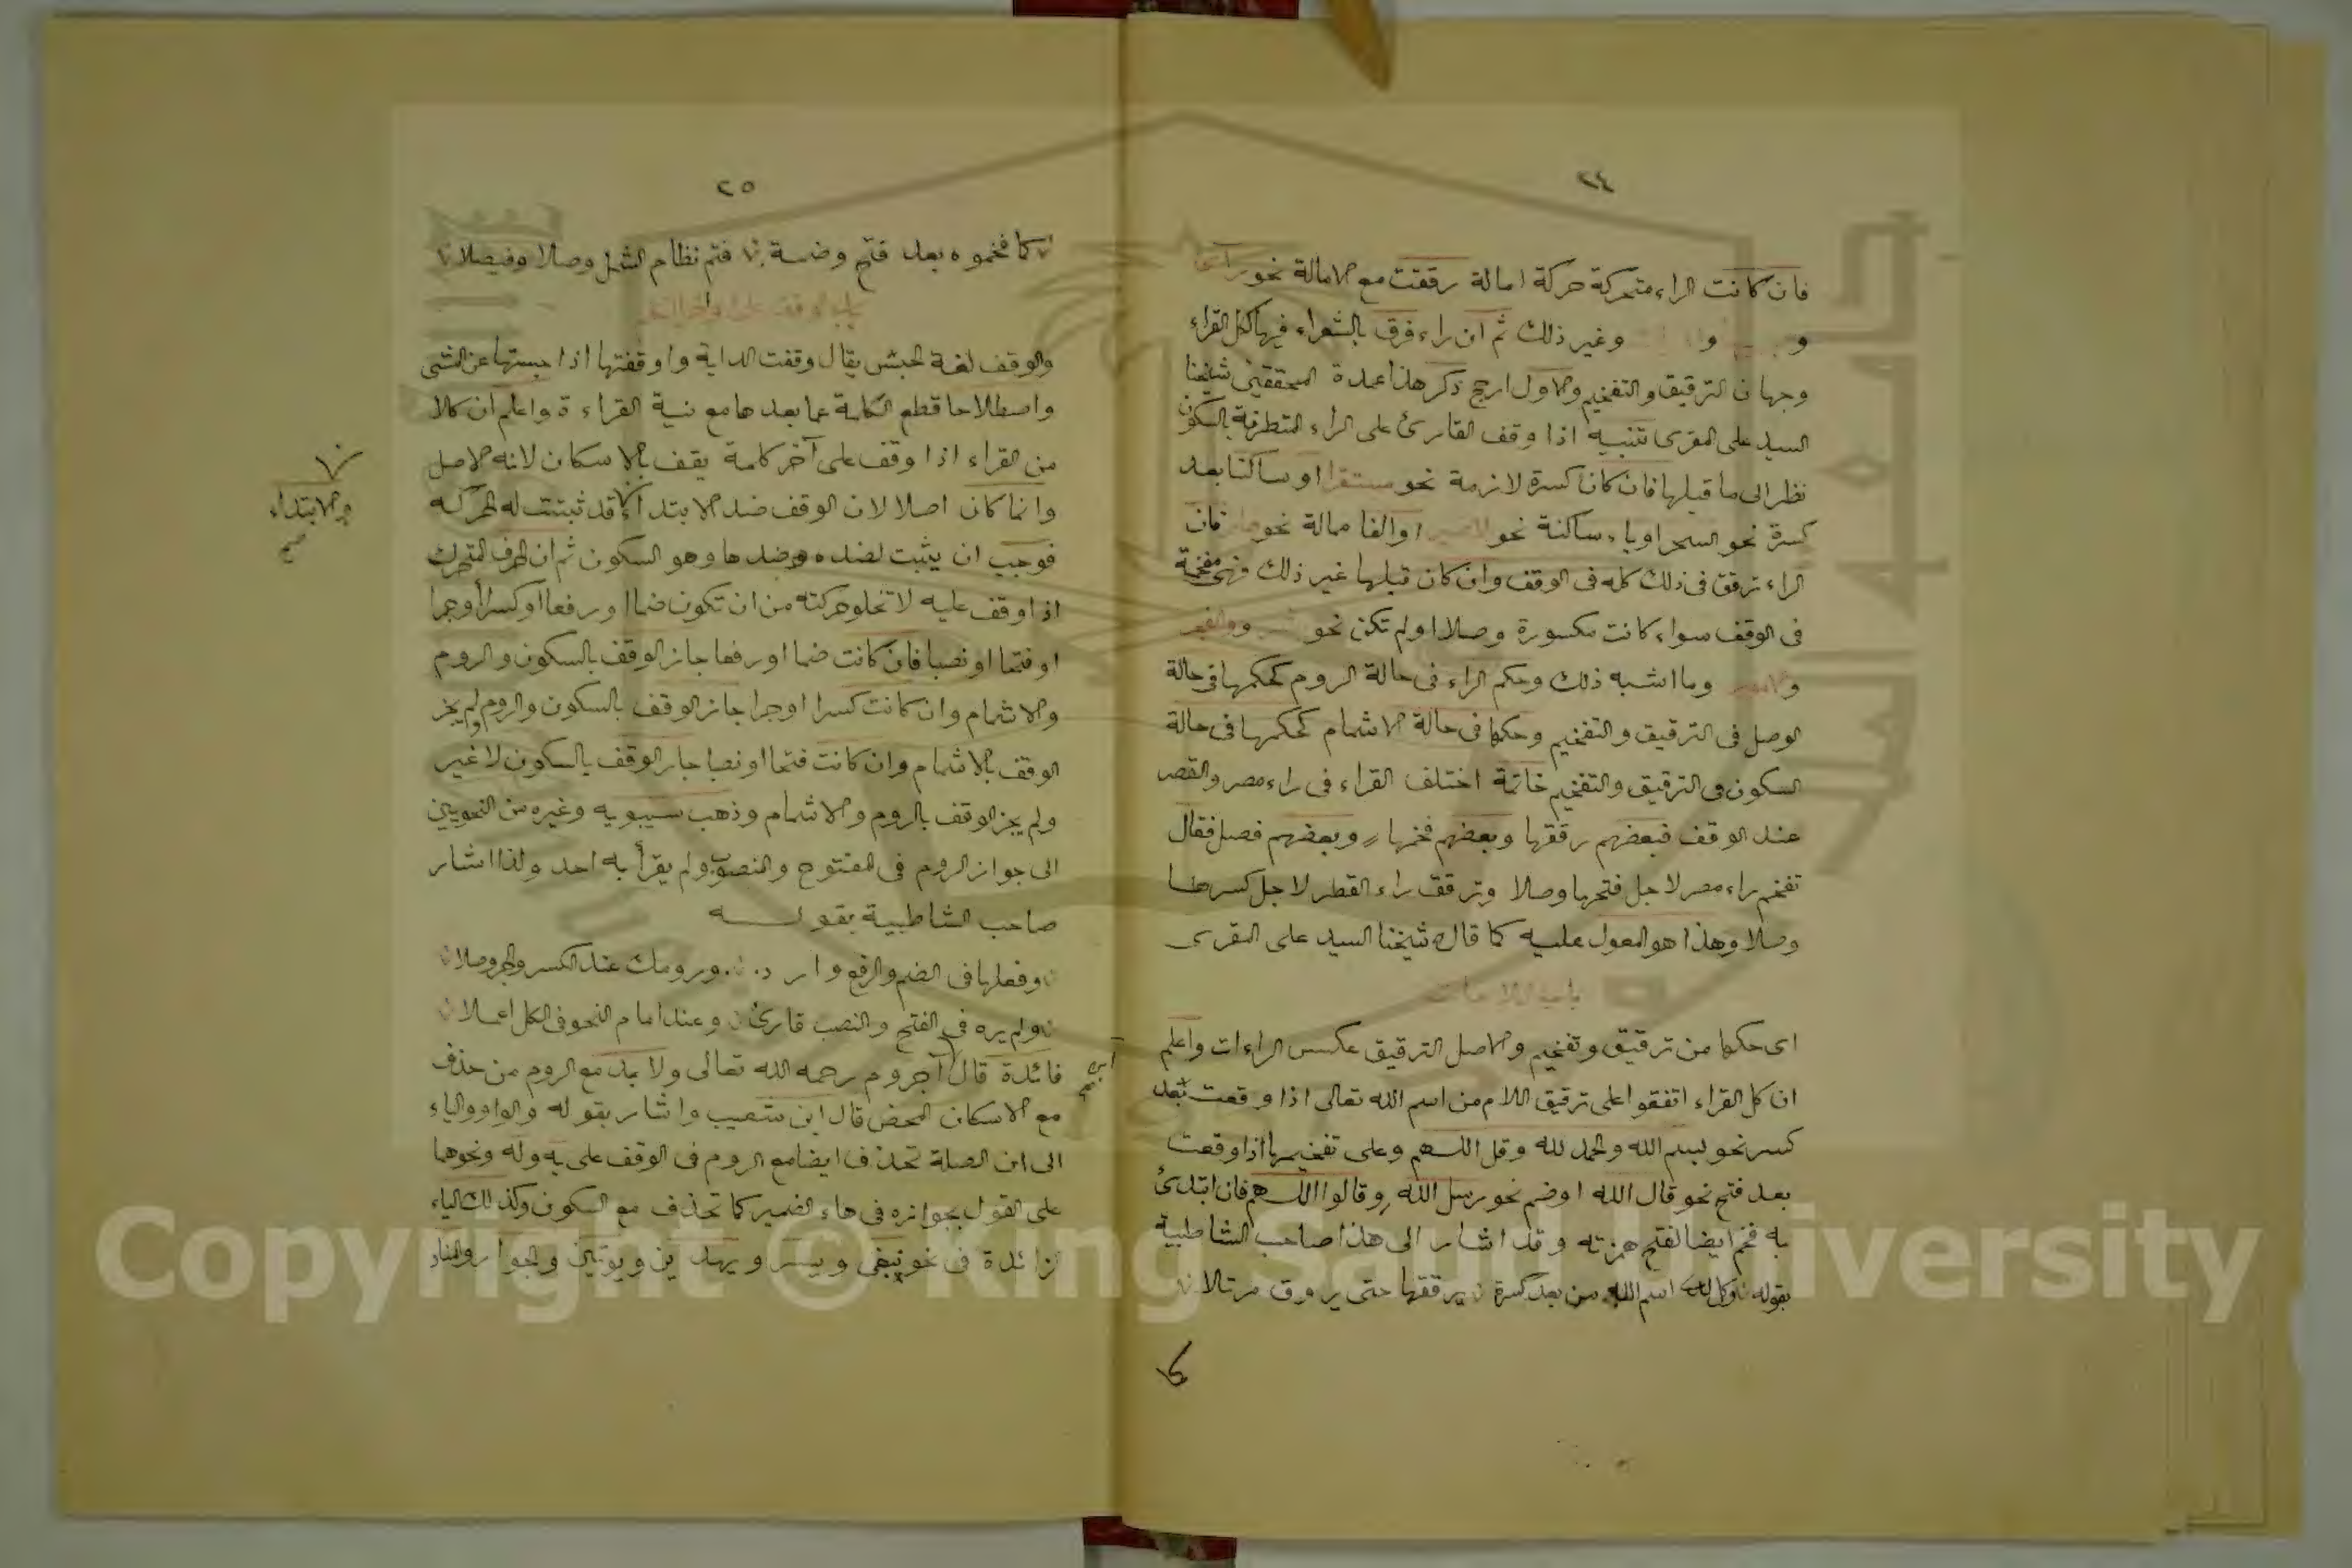 ٢٤
فان كانت الراء متحركة حركة امالة رققت مع الامالة نحو
و و وغير ذلك ثم ان راء فرق بالشعراء فيها لكل القراء
وجهان الترقيق والتفخيم والاول ارجح ذكر هذا عمدة المحققين شيخنا
السيد على المقرى تنبيه اذا وقف القارئ على الراء المتطرفة بالسكون
نظر الى ما قبلها فان كان كسرة لازمة نحو مستقرا او ساكنا بعد
كسرة نحو السحر او ياء ساكنة نحو او الفا ممالة نحو فان
الراء ترقق فى ذلك كله فى الوقف وان كان قبلها غير ذلك فهى مفخمة
فى الوقف سواء كانت مكسورة وصلا او لم تكن نحو والفجر
و وما اشبه ذلك وحكم الراء فى حالة الروم كحكمها فى حالة
الوصل فى الترقيق والتفخيم وحكمها فى حالة الاشمام كحكمها فى حالة
السكون فى الترقيق والتفخيم خاتمة اختلف القراء فى راء مصر والقصر
عند الوقف فبعضهم رققها وبعضهم فخمها وبعضهم فصل فقال
تفخم راء مصر لاجل فتحها وصلا وترقق راء القطر لاجل كسرها
وصلا وهذا هو المعول عليه كما قال شيخنا السيد على المقرى
باب اللامات
اى حكمها من ترقيق وتفخيم والاصل الترقيق عكس الراءات واعلم
ان كل القراء اتفقوا على ترقيق اللام من اسم الله تعالى اذا وقعت بعد
كسر نحو بسم الله والحمد لله وقل اللهم وعلى تفخيمها اذا وقعت
بعد فتح نحو قال الله او ضم نحو رسل الله وقالوا اللهم فان ابتدئ
به فخم ايضا لفتح همزته وقد اشار الى هذا صاحب الشاطبية
بقوله وكل لدى اسم الله من بعد كسرة يرققها حتى يروق مرتلا
كما
٢٥
كما فخموه بعد فتح وضمة فتم نظام الشمل وصلا وفيصلا
باب الوقف على اواخر الكلم
والوقف لغة الحبس يقال وقفت الدابة واوقفتها اذا حبستها عن المشى
واصطلاحا قطع الكلمة عما بعدها مع نية القراءة واعلم ان كلا
من القراء اذا وقف على آخر كلمة يقف بالاسكان لانه الاصل
وانما كان اصلا لان الوقف ضد الابتداء قد ثبتت له الحركة
والابتداء
صح
فوجب ان يثبت لضده ضدها وهو السكون ثم ان الحرف المتحرك
اذا وقف عليه لا تخلو حركته من ان تكون ضما او رفعا او كسرا او جرا
او فتحا او نصبا فان كانت ضما او رفعا جاز الوقف بالسكون والروم
والاشمام وان كانت كسرا او جرا جاز الوقف بالسكون والروم ولم يجز
الوقف بالاشمام وان كانت فتحا او نصبا جاز الوقف بالسكون لا غير
ولم يجز الوقف بالروم والاشمام وذهب سيبويه وغيره من النحويين
الى جواز الروم فى المفتوح والمنصوب ولم يقرأ به احد ولذا اشار
صاحب الشاطبية بقوله
وفعلها فى الضم والرفع وارد ورومك عند الكسر والجر وصلا
ولم يره فى الفتح والنصب قارئ وعند امام النحو فى الكل اعملا
فائدة قال آجروم رحمه الله تعالى ولا بد مع الروم من حذف
ابن
صح
مع الاسكان المحض قال ابن شعيب واشار بقوله والواو والياء
الى ان الصلة تحذف ايضا مع الروم فى الوقف على به وله ونحوهما
على القول بجوازه فى هاء الضمير كما تحذف مع السكون وكذلك الياء
الزائدة فى نحو نبغى ويسر ويهدين ويوتين والجوار والمناد
Copyright © King Saud University